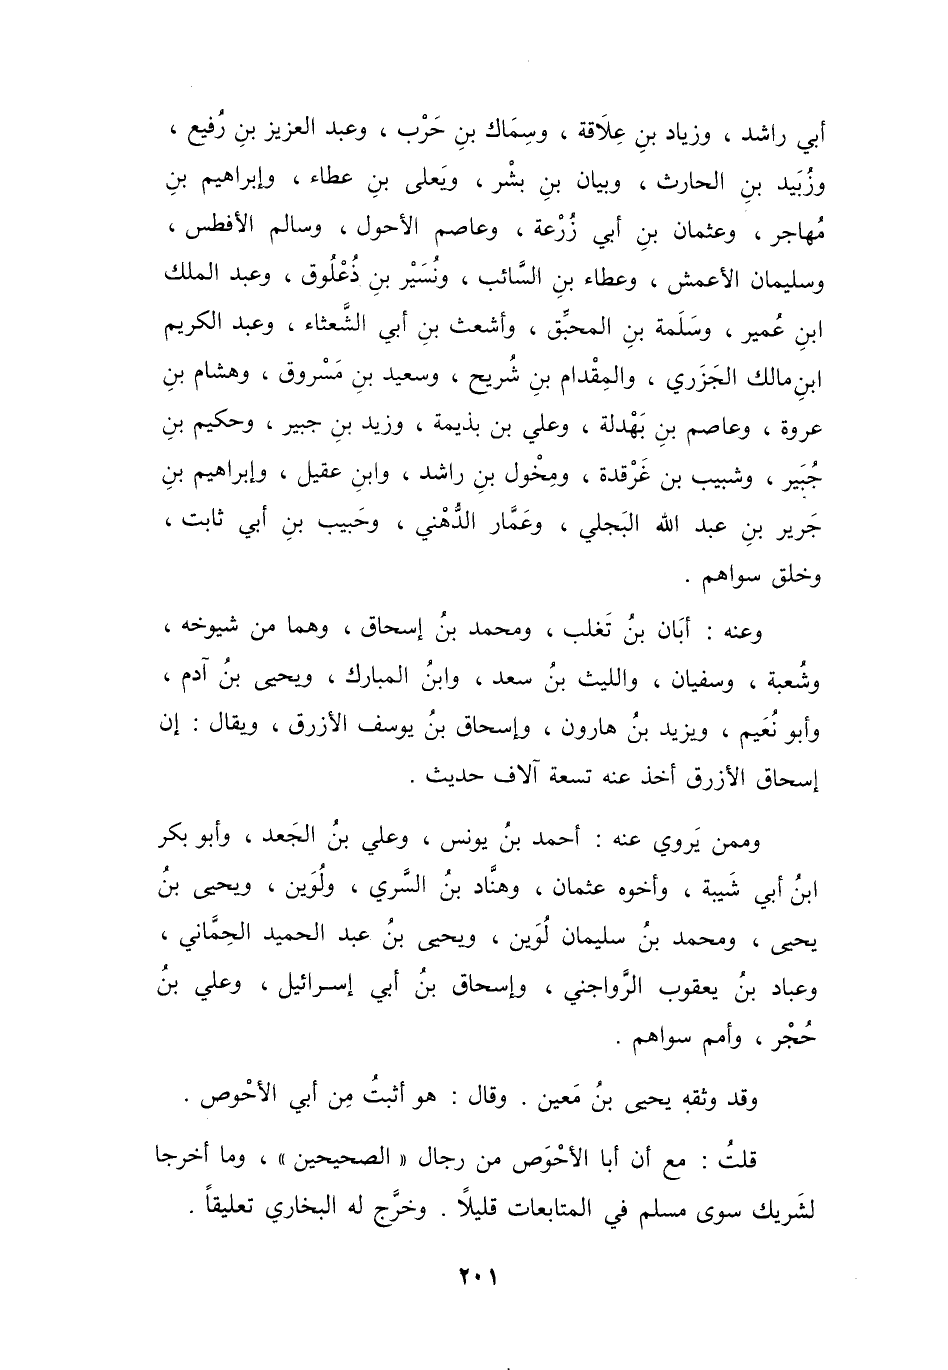 أبي راشد ، وزياد بنِ عِلَاقة ، وسِمَاك بنِ حَرْب ، وعبد العزيز بنِ رُفيع ،
وزُبَيد بنِ الحارث ، وبيان بنِ بشْر ، ويَعلى بنِ عطاء ، وإبراهيم بنِ
مُهاجر ، وعثمان بنِ أبي زُرْعة ، وعاصم الأحول ، وسالم الأفطس ،
وسليمان الأعمش ، وعطاء بنِ السَّائب ، ونُسَيْر بنِ ذُعْلُوق ، وعبد الملك
ابنِ عُمير ، وسَلَمة بنِ المحبِّق ، وأشعث بنِ أبي الشَّعثاء ، وعبد الكريم
ابنِ مالك الجَزَري ، والمِقْدام بنِ شُريح ، وسعيد بنِ مَسْروق ، وهشام بنِ
عروة ، وعاصم بنِ بَهْدلة ، وعلي بن بذيمة ، وزيد بنِ جبير ، وحكيم بنِ
جُبَير ، وشبيب بن غَرْقدة ، ومِخْول بنِ راشد ، وابنِ عقيل ، وإبراهيم بنِ
جَرير بنِ عبد الله البَجلي ، وعَمَّار الدُّهْني ، وحَبيب بنِ أبي ثابت ،
وخلق سواهم .
وعنه : أبَان بنُ تَغلب ، ومحمد بنُ إسحاق ، وهما من شيوخه ،
وشُعبة ، وسفيان ، والليث بنُ سعد ، وابنُ المبارك ، ويحيى بنُ آدم ،
وأبو نُعَيم ، ويزيد بنُ هارون ، وإسحاق بنُ يوسف الأزرق ، ويقال : إن
إسحاق الأزرق أخذ عنه تسعة آلاف حديث .
وممن يَروي عنه : أحمد بنُ يونس ، وعلي بنُ الجَعد ، وأبو بكر
ابنُ أبي شَيبة ، وأخوه عثمان ، وهنَّاد بنُ السَّري ، ولُوَين ، ويحيى بنُ
يحيى ، ومحمد بنُ سليمان لُوَين ، ويحيى بنُ عبد الحميد الحِمَّاني ،
وعباد بنُ يعقوب الرَّواجني ، وإسحاق بنُ أبي إسرائيل ، وعلي بنُ
حُجْر ، وأمم سواهم .
وقد وثقه يحيى بنُ مَعين . وقال : هو أثبتُ مِن أبي الأحْوص .
قلتُ : مع أن أبا الأحْوَص من رجال « الصحيحين » ، وما أخرجا
لشَريك سوى مسلم في المتابعات قليلاً . وخرَّج له البخاري تعليقاً .
٢٠١